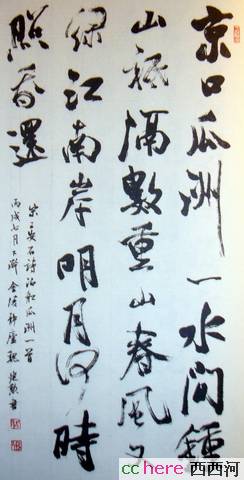 京口瓜洲一水間鍾
山祗隔數重山春風又
緑江南岸明月何時
照吾還
宋王安石詩泊船瓜洲一首
丙戌七月下澣金陵
cchere 西西河